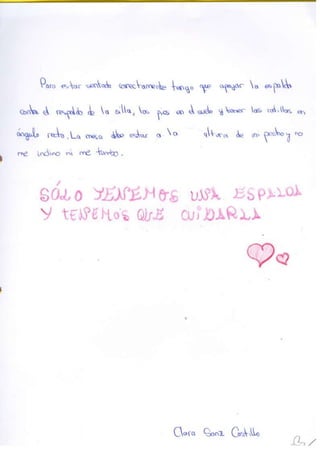 Para estar sentado correctamente tengo que apoyar la espalda
contra el respaldo de la silla, los pies en el suelo y tener las rodillas en
ángulo recto. La mesa debe estar a la altura de mi pecho y no
me inclino ni me tumbo.
SÓLO TENEMOS UNA ESPALDA
Y TENEMOS QUE CUIDARLA
Clara Sanz Castillo